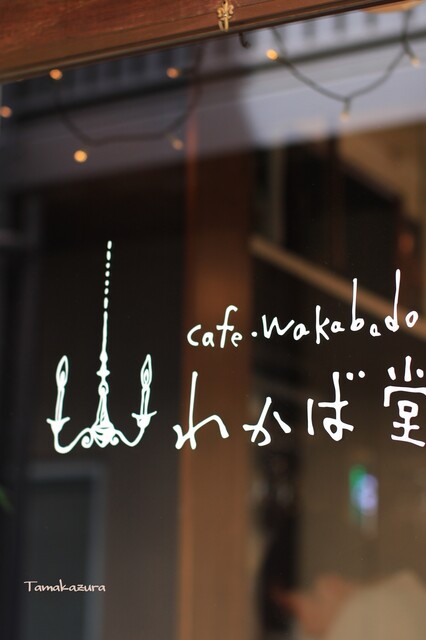 cafe·wakabado
わかば堂
Tamakazura